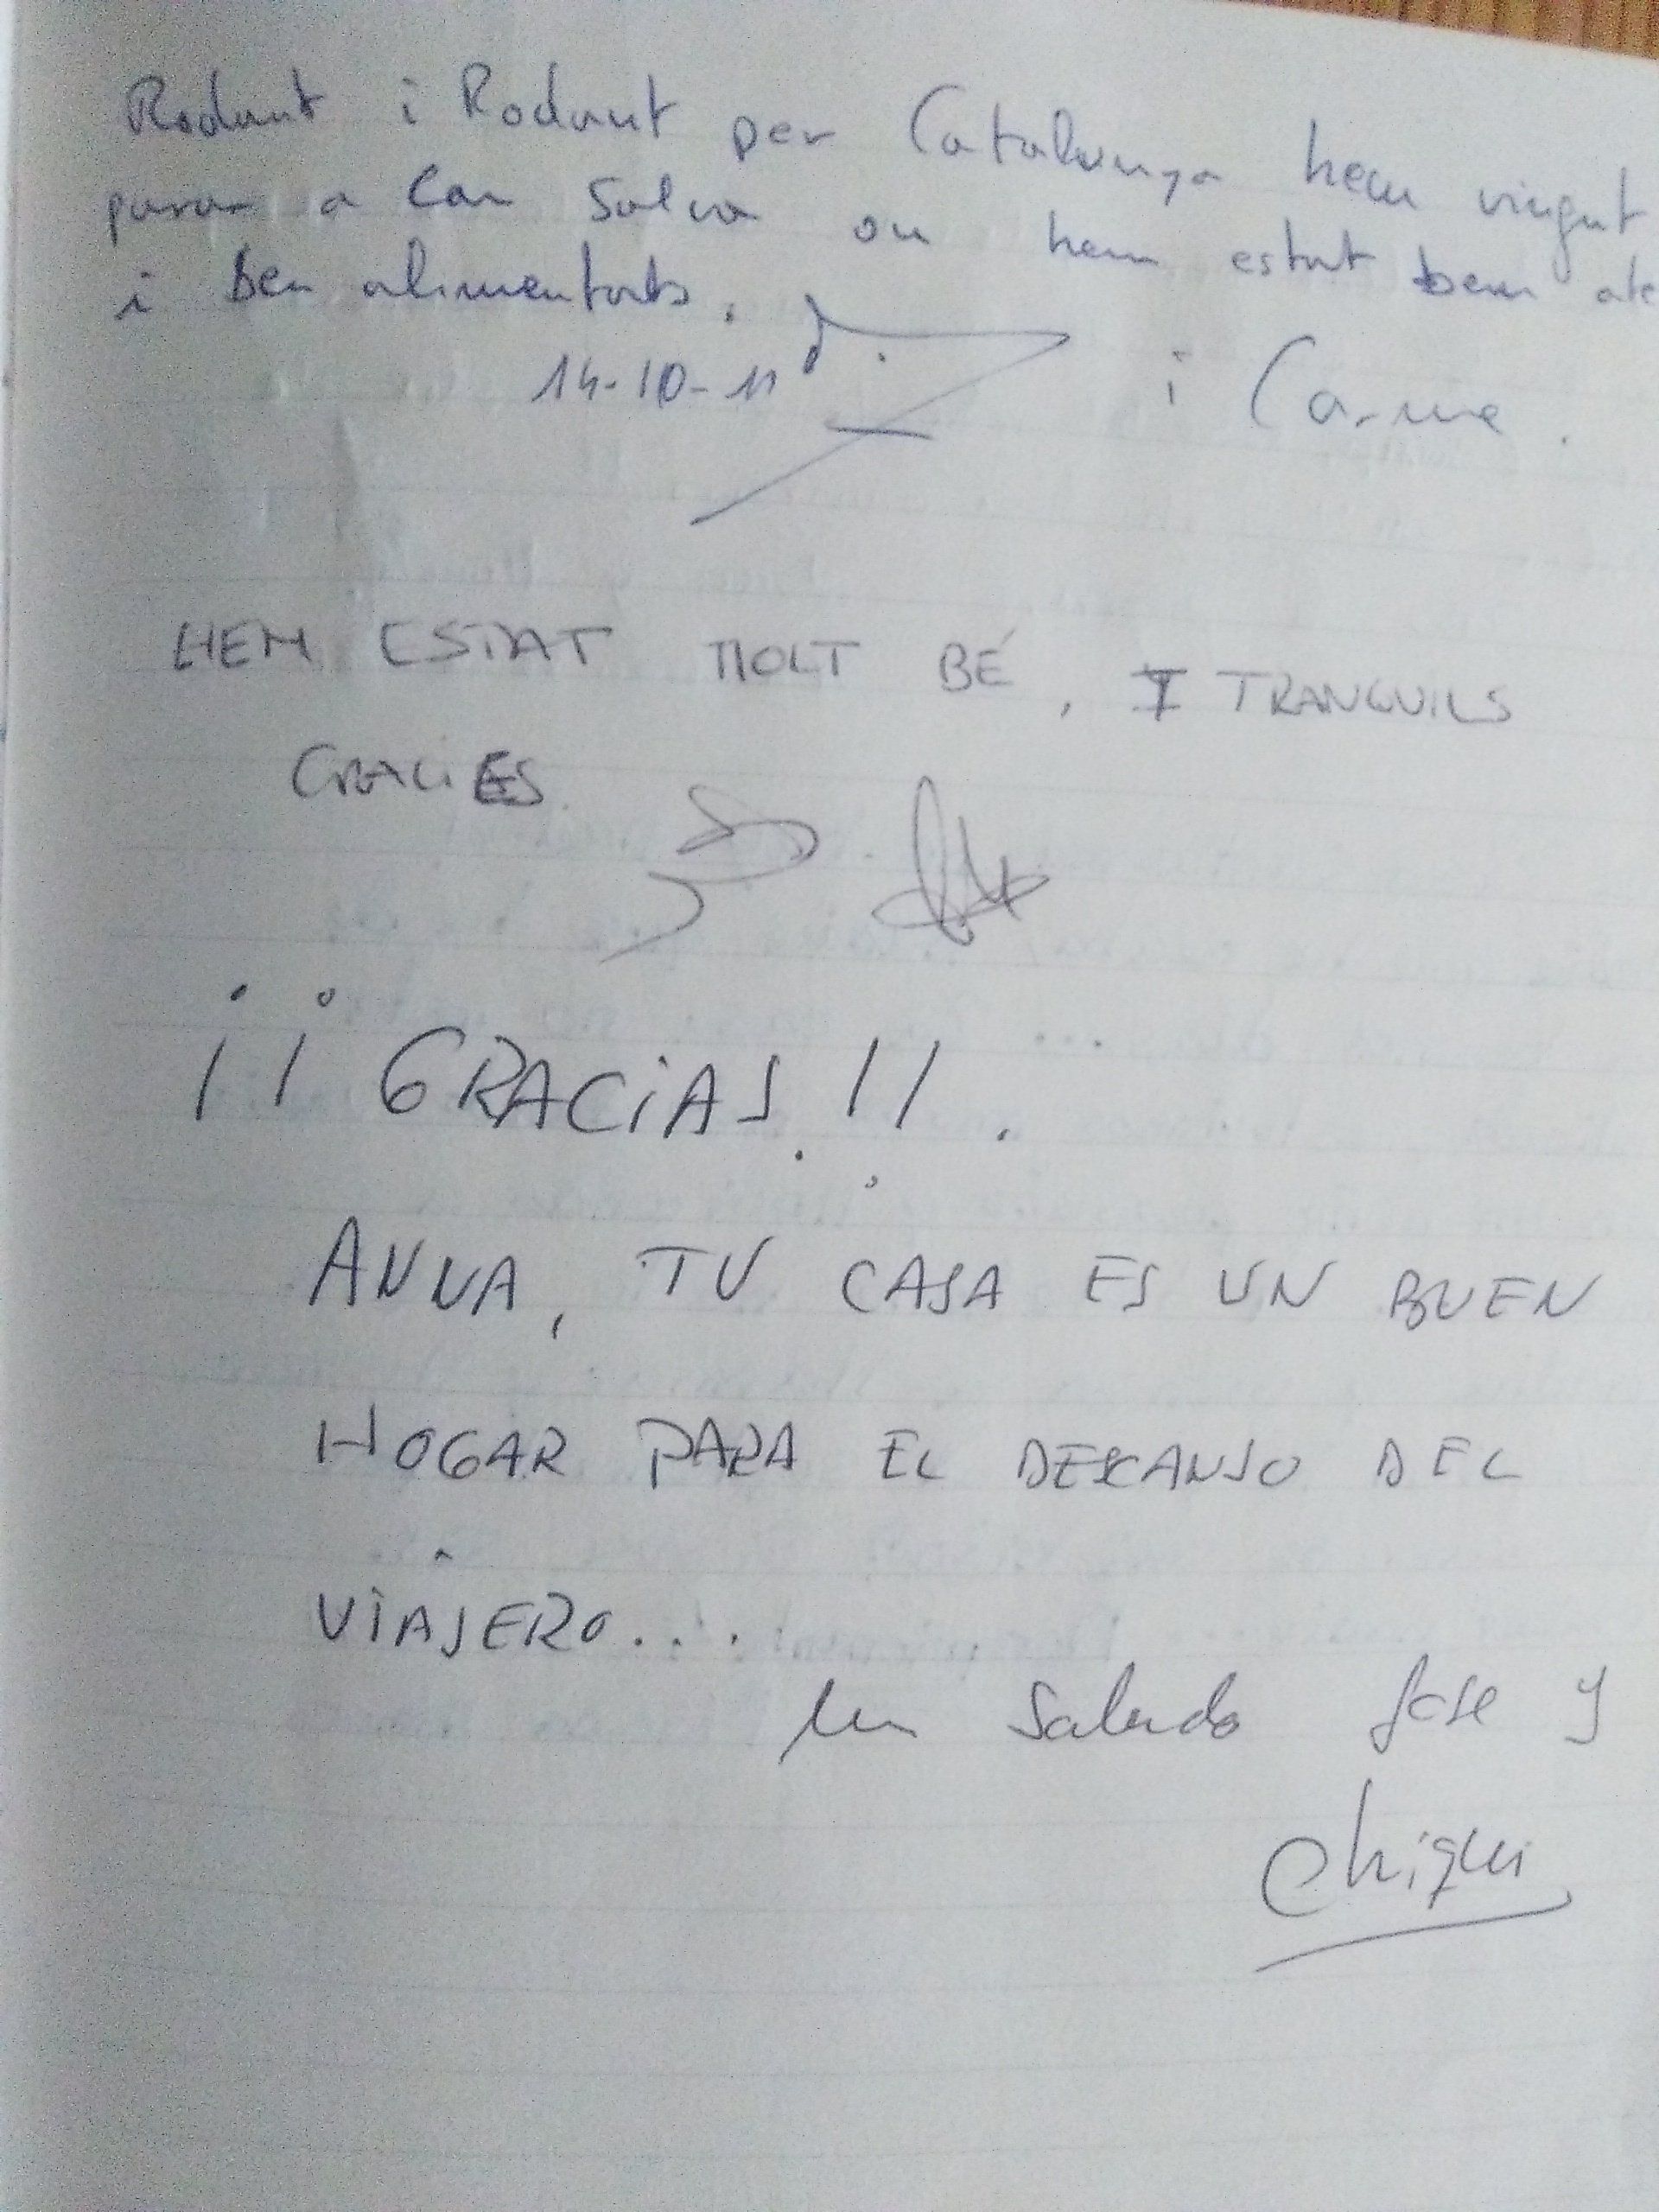 Rodant i Rodant per Catalunya hem vingut
parar a Can Salva on hem estat ben ate
i ben alimentats.
14-10-11 i Carme.
HEM ESTAT MOLT BÉ, I TRANQUILS
GRACIES
¡¡GRACIAS!!.
ANNA, TU CASA ES UN BUEN
HOGAR PARA EL DESCANSO DEL
VIAJERO...
Un saludo Jose y
Chiqui